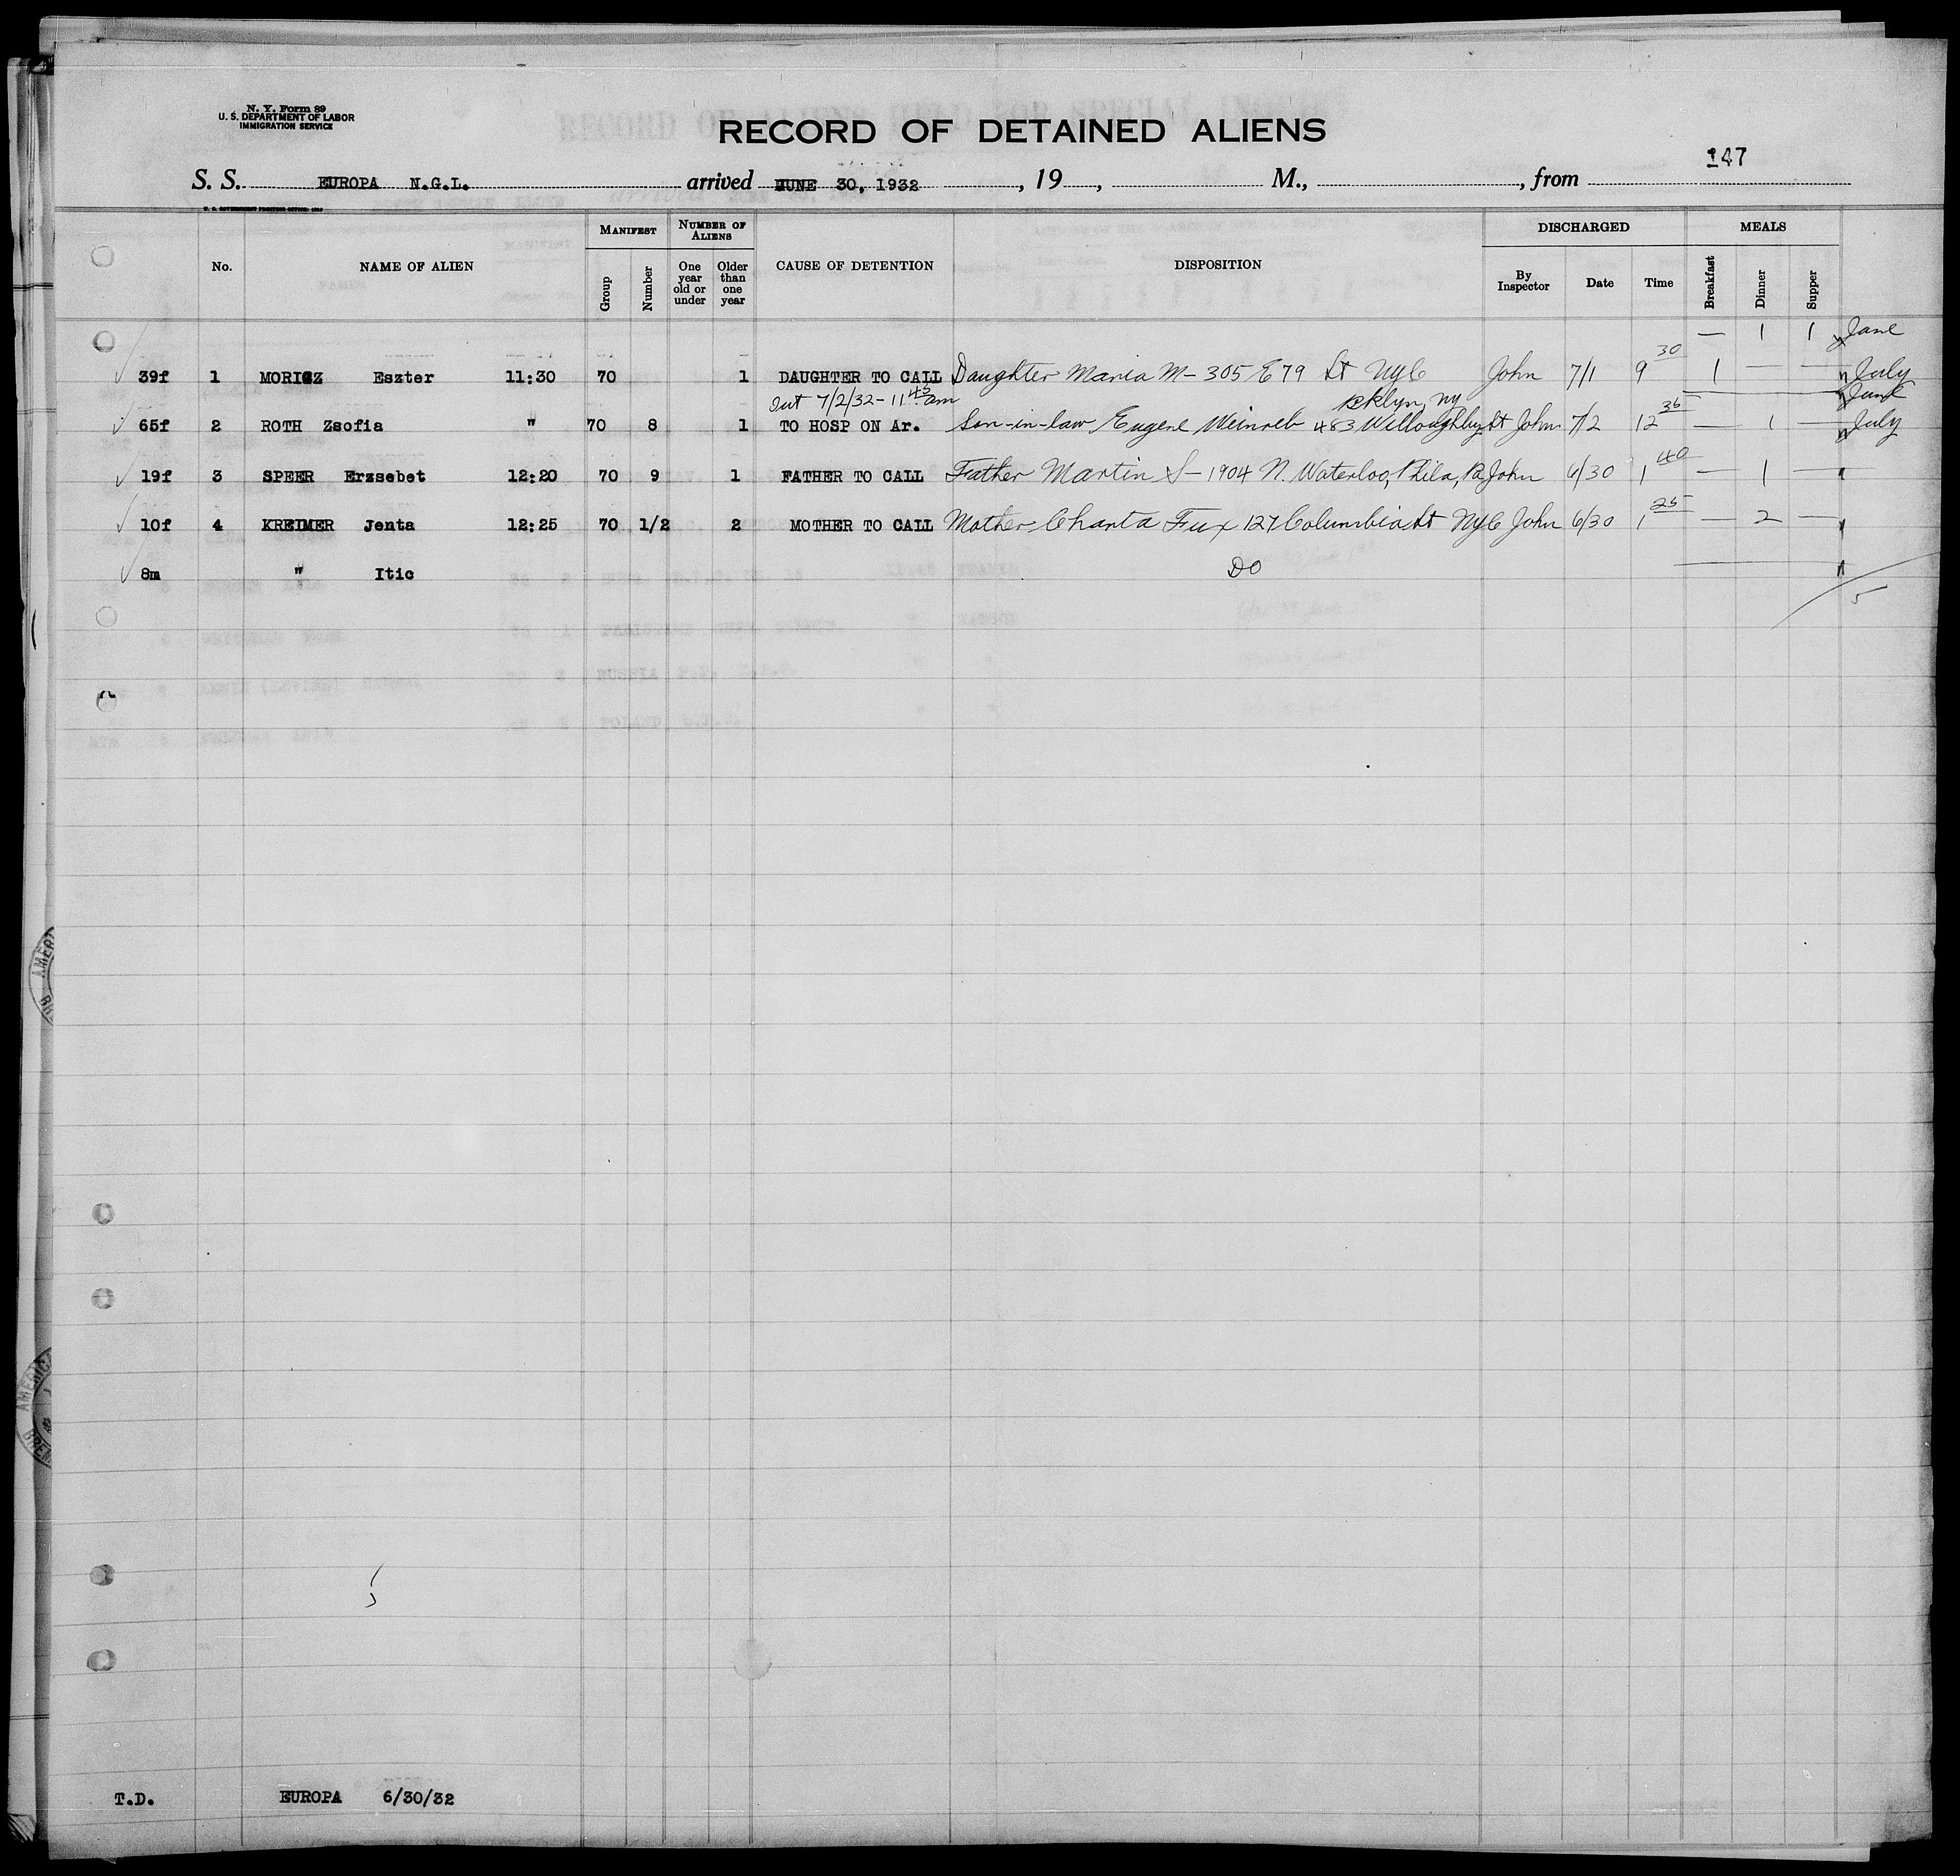 N. Y. Form 89
U. S. DEPARTMENT OF LABOR
IMMIGRATION SERVICE
RECORD OF DETAINED ALIENS
147
S. S. EUROPA N.G.L. arrived JUNE 30, 1932 , 19 , M., , from
No. NAME OF ALIEN MANIFEST Group Number NUMBER OF ALIENS One year old or under Older than one year CAUSE OF DETENTION DISPOSITION DISCHARGED By Inspector Date Time MEALS Breakfast Dinner Supper
— 1 1 June
39f 1 MORICZ Eszter 11:30 70 1 DAUGHTER TO CALL Daughter Maria M- 305 E 79 St NYC John 7/1 9 30 1 — — " July
Out 7/2/32 - 11 45 am Bklyn, NY June
65f 2 ROTH Zsofia " 70 8 1 TO HOSP ON Ar. Son-in-law Eugene Weinreb 483 Willoughby St John 7/2 12 35 — 1 — " July
19f 3 SPEER Erzsebet 12:20 70 9 1 FATHER TO CALL Father Martin S- 1904 N. Waterloo, Phila, Pa John 6/30 1 40 — 1 — "
10f 4 KREIMER Jenta 12:25 70 1/2 2 MOTHER TO CALL Mother Chanta Fux 127 Columbia St NYC John 6/30 1 25 — 2 — "
8m " Itic DO "
5
5
T.D. EUROPA 6/30/32